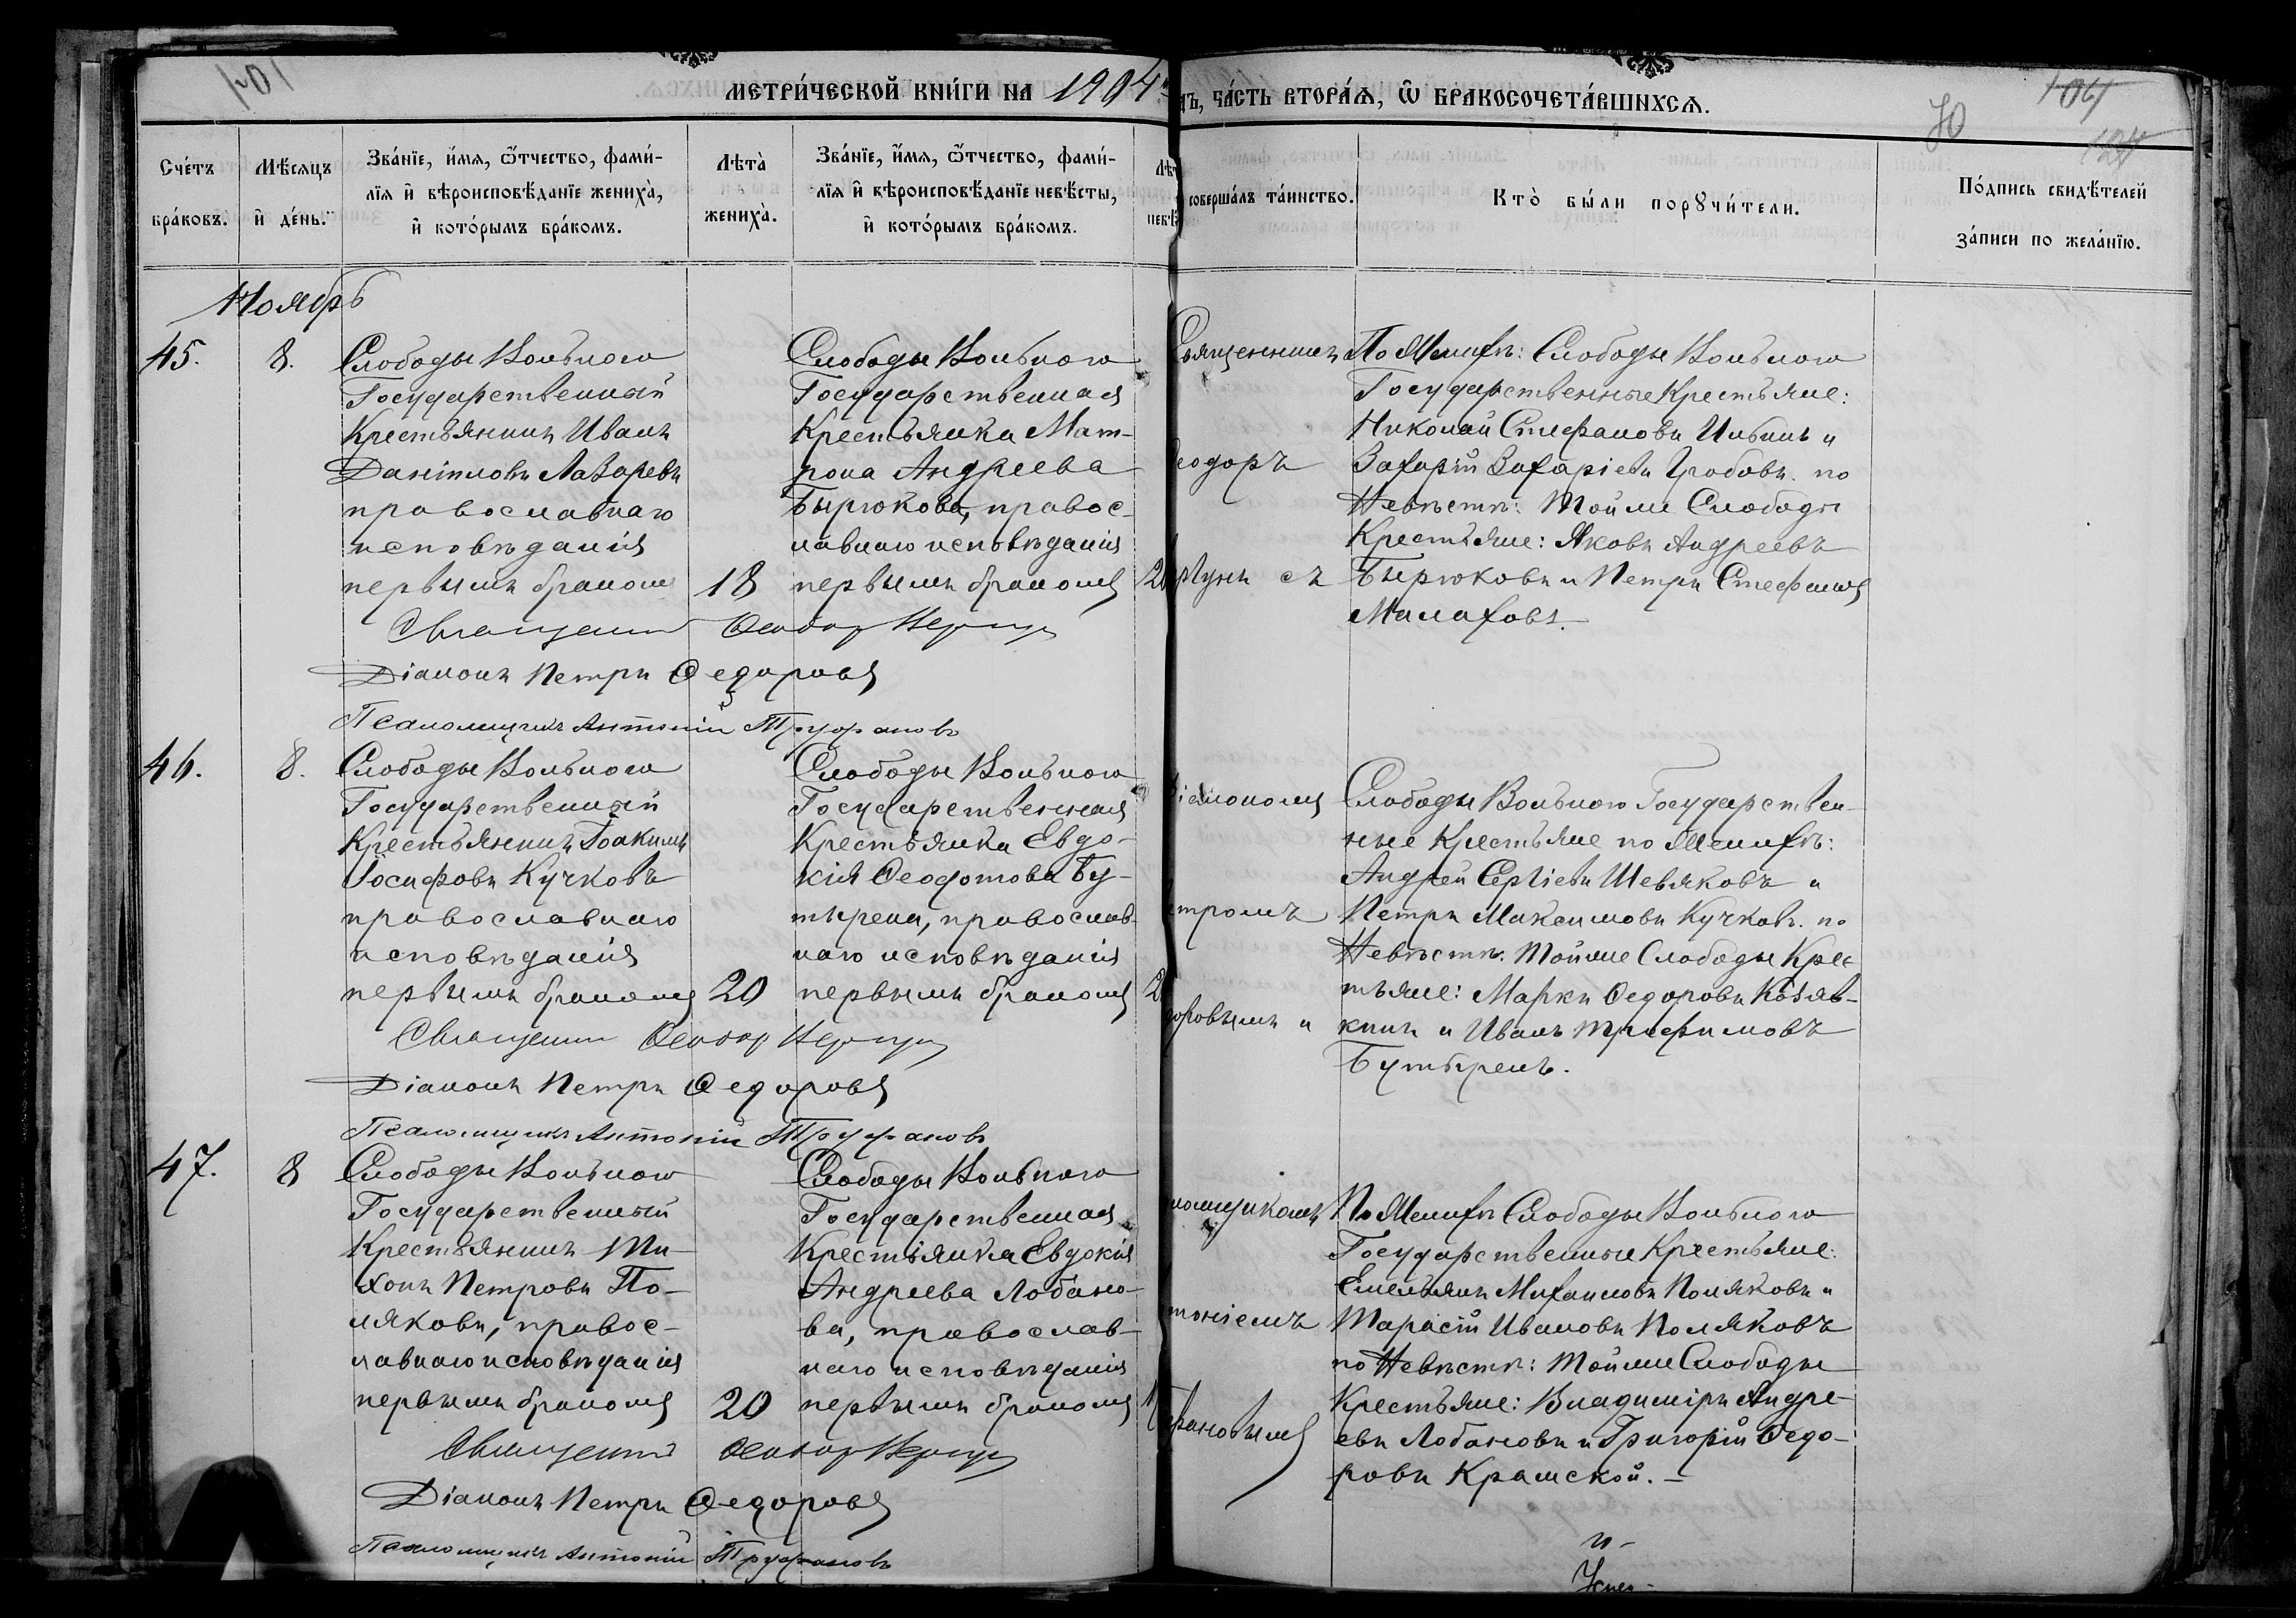 МЕТРИ́ЧЕСКОЙ КНИ́ГИ НА 1904
ЧА́СТЬ ВТОРА́Ѧ, Ѿ БРАКОСОЧЕТА́ВШИХСѦ.
104
70
Сче́тъ бра́ковъ.
Мѣ́сѧцъ и҆ де́нь.
Зва́нїе, и҆́мѧ, ѻ҆́тчество, фами́-
лїѧ и҆ вѣроисповѣ́данїе жениха̀,
и҆ кото́рымъ бра́комъ.
Лѣта̀ жениха̀.
Зва́нїе, и҆́мѧ, ѻ҆́тчество, фами́-
лїѧ и҆ вѣроисповѣ́данїе невѣ́сты,
и҆ кото́рымъ бра́комъ.
соверша́лъ та́инство.
Кто̀ бы́ли порꙋчи́тели.
По́дпись свидѣ́телей
за́писи по жела́нїю.
Ноябрь
45.
8.
Слободы Вольного
Государственный
Крестьянинъ Иванъ
Даніиловъ Лазаревъ
православнаго
исповѣданія
первымъ бракомъ
18
Слободы Вольного
Государственная
Крестьянка Мат-
рона Андреева
Бырюкова, правос-
лавнаго исповѣданія
первымъ бракомъ
Священникъ
еодоръ
съ
По Женихѣ: Слободы Вольного
Государственные Крестьяне:
Николай Стефановъ и
Захарій Захаріевъ Гробовъ. по
Невѣстѣ: Тойже Слободы
Крестьяне: Яковъ Андреевъ
Бырюковъ и Петръ Стефановъ
Малаховъ.
Священникъ Ѳеодор
Діаконъ Петръ Ѳедоровъ
Псаломщикъ Антоній Труфановъ
46.
8.
Слободы Вольного
Государственный
Крестьянинъ Іоакимъ
Іосифовъ Кучковъ
православнаго
исповѣданія
первымъ бракомъ
20
Слободы Вольного
Государственная
Крестьянка Евдо-
кія Ѳеодотова Бу-
тырена, православ-
наго исповѣданія
первымъ бракомъ
іакономъ
етромъ
доровымъ и
Слободы Вольного Государствен-
ные Крестьяне по Женихѣ:
Андрей Сергіевъ Шевяковъ и
Петръ Максимовъ Кучковъ. по
Невѣстѣ. Тойже Слободы Крес
тьяне: Маркъ Ѳедоровъ Козяв-
кинъ и Иванъ Трифимовъ
Бутыренъ.
Священникъ Ѳеодор
Діаконъ Петръ Ѳедоровъ
Псаломщикъ Антоній Труфановъ
47.
8
Слободы Вольного
Государственный
Крестьянинъ Ти-
хонъ Петровъ По-
ляковъ, правос-
лавнаго исповѣданія
первымъ бракомъ
20
Слободы Вольного
Государственная
Крестьянка Евдокія
Андреева Лобано-
ва, православ-
наго исповѣданія
первымъ бракомъ
ломщикомъ
тоніемъ
фановымъ
По Женихѣ Слободы Вольного
Государственные Крестьяне:
Емельянъ Михаиловъ Поляковъ и
Тарасій Ивановъ Поляковъ
по Невѣстѣ: Тойже Слободы
Крестьяне: Владиміръ Андре-
евъ Лобановъ и Григорій Ѳедо-
ровъ Крамской.
Священникъ Ѳеодор
Діаконъ Петръ Ѳедоровъ
Псаломщикъ Антоній Труфановъ